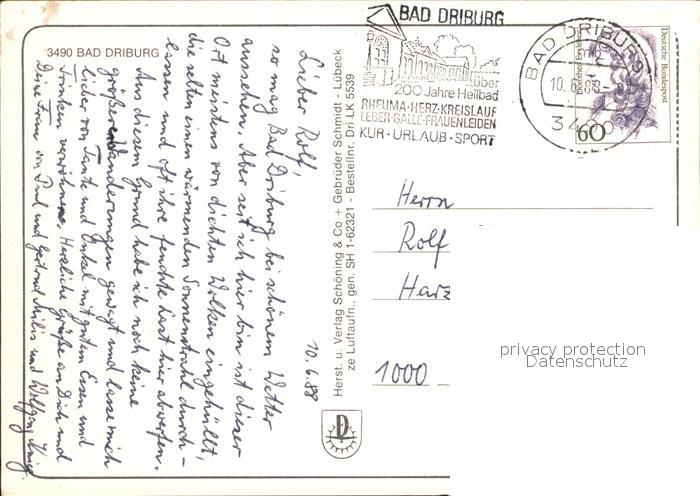 3490 BAD DRIBURG
10.6.88
Lieber Rolf,
so mag Bad Driburg bei schönem Wetter
aussehen. Aber seit ich hier bin ist dieser
Ort meistens von dichten Wolken eingehüllt,
die selten einen wärmenden Sonnenstrahl durch-
lassen und oft ihre feuchte Last hier abwerfen.
Aus diesem Grund habe ich noch keine
größeren Wanderungen gewagt und lasse mich
lieber von Tante und Onkel mit gutem Essen und
Trinken verwöhnen. Herzliche Grüße an Dich und
Deine Frau von Paul und Gertrud und Wolfgang
Herst. u. Verlag Schöning & Co + Gebrüder Schmidt - Lübeck
ze Luftaufn., gen. SH 1-62321 - Bestellnr. Dri LK 5539
BAD DRIBURG
über
200 Jahre Heilbad
RHEUMA·HERZ·KREISLAUF
LEBER·GALLE·FRAUENLEIDEN
KUR · URLAUB · SPORT
BAD DRIBURG
10.6.88
Deutsche Bundespost
60
Herrn
Rolf
Harz
1000
privacy protection
Datenschutz